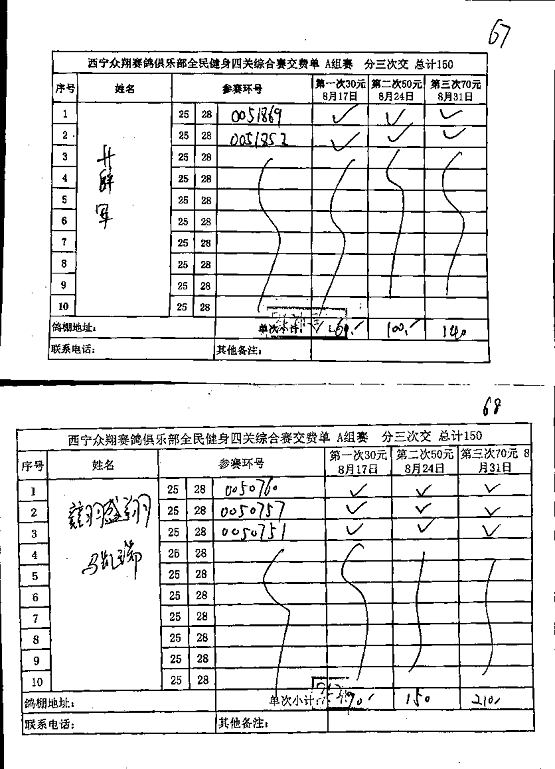 67
西宁众翔赛鸽俱乐部全民健身四关综合赛交费单 A组赛 分三次交 总计150
序号 姓名 参赛环号 第一次30元 8月17日 第二次50元 8月24日 第三次70元 8月31日
1 25 28 0051869 ✓ ✓ ✓
2 25 28 0051852 ✓ ✓ ✓
3 25 28
4 25 28
5 25 28
6 25 28
7 25 28
8 25 28
9 25 28
10 25 28
鸽棚地址: 单次小计: 60 100 140
联系电话: 其他备注:
68
西宁众翔赛鸽俱乐部全民健身四关综合赛交费单 A组赛 分三次交 总计150
序号 姓名 参赛环号 第一次30元 8月17日 第二次50元 8月24日 第三次70元 8月31日
1 25 28 0050760 ✓ ✓ ✓
2 翔盛翔 25 28 0050757 ✓ ✓ ✓
3 25 28 0050751 ✓ ✓ ✓
4 马凯瑞 25 28
5 25 28
6 25 28
7 25 28
8 25 28
9 25 28
10 25 28
鸽棚地址: 单次小计: 90 150 210
联系电话: 其他备注: